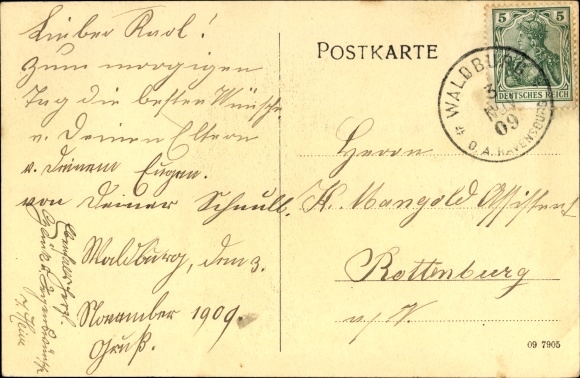 Lieber Karl!
Zum morgigen
Tag die besten Wünsche
v. Deinen Eltern
v. Deinem Eugen.
von Deiner
Waldburg, den 3.
November 1909.
Gruß.
POSTKARTE
5 5
DEUTSCHES REICH
WALDBURG
3
NOV
09
O.A. RAVENSBURG
Herrn
K. Mangold Assistent
Rottenburg
a/N.
09 7905